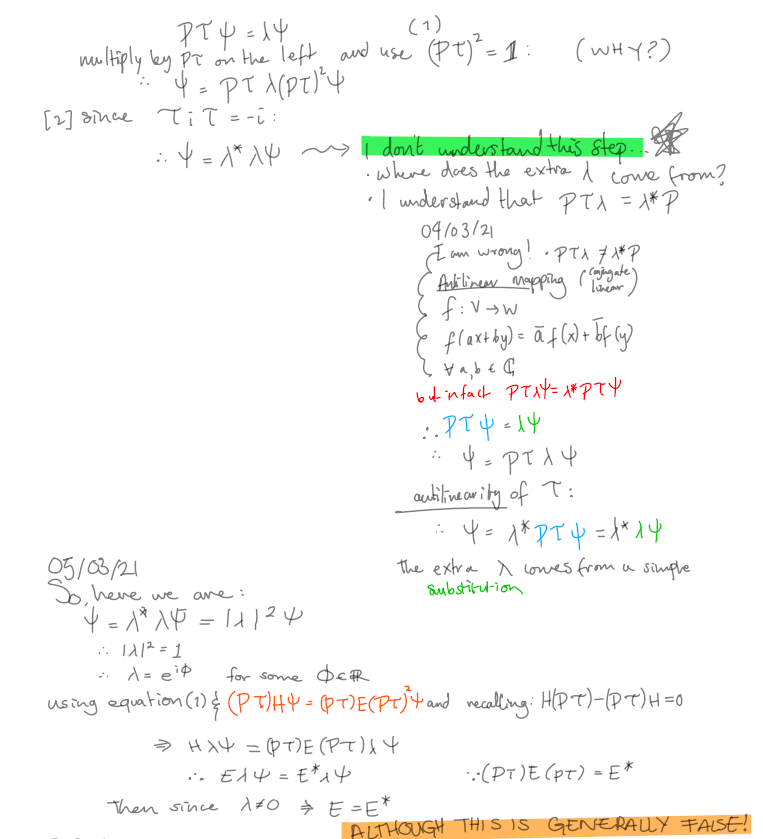 PτΨ = λΨ (1)
multiply by Pτ on the left and use (Pτ)² = 1: (WHY?)
∴ Ψ = Pτ λ(Pτ)²Ψ
[2] since τ i τ = -i:
∴ Ψ = λ* λΨ ⟿ I don't understand this step...
· where does the extra λ come from?
· I understand that Pτλ = λ*P
04/03/21
I am wrong! · Pτλ ≠ λ*P
Antilinear mapping (conjugate linear)
f : V → W
f(ax+by) = āf(x) + b̄f(y)
∀ a,b ∈ ℂ
but in fact PτλΨ = λ*PτΨ
∴ PτΨ = λΨ
∴ Ψ = PτλΨ
antilinearity of τ:
∴ Ψ = λ*PτΨ = λ*λΨ
the extra λ comes from a simple
substitution
05/03/21
So, here we are:
Ψ = λ*λΨ = |λ|²Ψ
∴ |λ|² = 1
∴ λ = e^{iϕ} for some ϕ∈ℝ
using equation (1) & (Pτ)HΨ = (Pτ)E(Pτ)²Ψ and recalling: H(Pτ)-(Pτ)H=0
⇒ HλΨ = (Pτ)E(Pτ)λΨ
∴ EλΨ = E*λΨ ∵(Pτ)E(Pτ) = E*
Then since λ≠0 ⇒ E = E*
ALTHOUGH THIS IS GENERALLY FALSE!